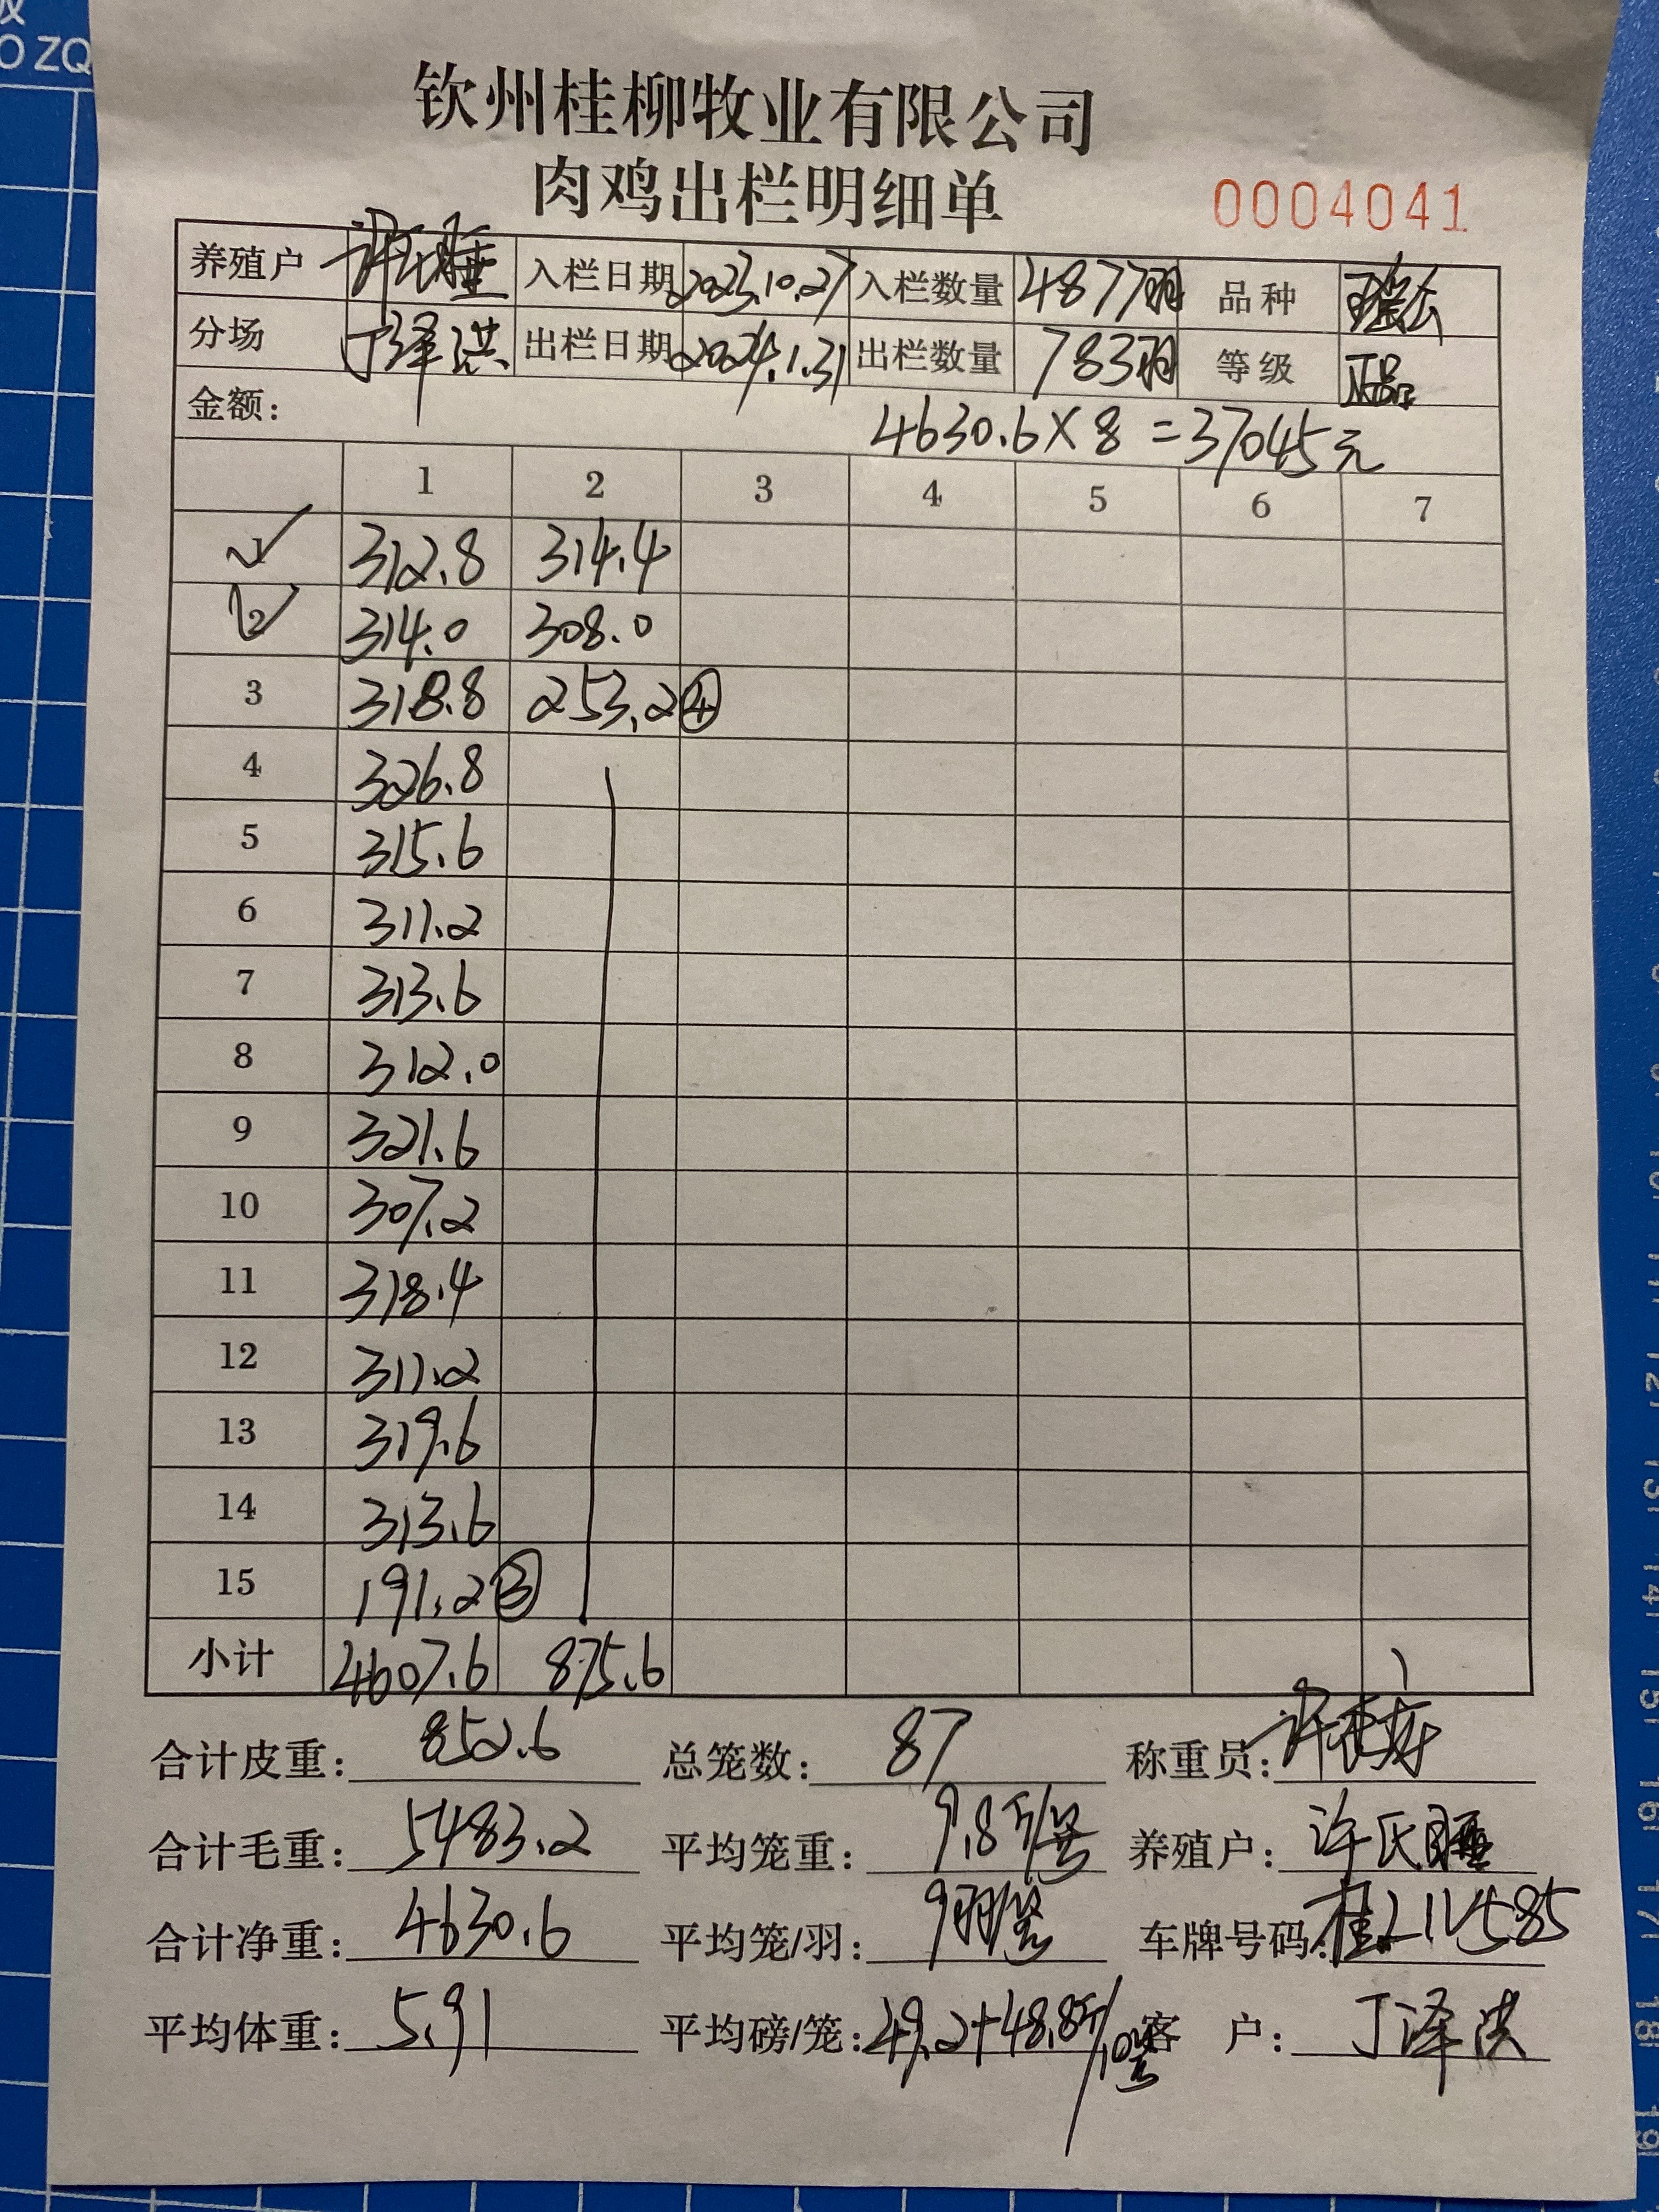 钦州桂柳牧业有限公司
肉鸡出栏明细单 0004041
养殖户 许氏 入栏日期 2023.10.27 入栏数量 4877羽 品种
分场 丁泽洪 出栏日期 2024.1.31 出栏数量 783羽 等级 正品
金额: 4630.6×8=37045元
1 2 3 4 5 6 7
1 312.8 314.4
2 314.0 308.0
3 318.8 253.2④
4 326.8
5 315.6
6 311.2
7 313.6
8 312.0
9 321.6
10 307.2
11 318.4
12 311.2
13 319.6
14 313.6
15 191.2③
小计 4607.6 875.6
合计皮重: 852.6 总笼数: 87 称重员: 许
合计毛重: 5483.2 平均笼重: 9.8斤/笼 养殖户: 许氏
合计净重: 4630.6 平均笼/羽: 9羽/笼 车牌号码: 桂L1V585
平均体重: 5.91 平均磅/笼: 49.2+48.8斤/10笼 客 户: 丁泽洪